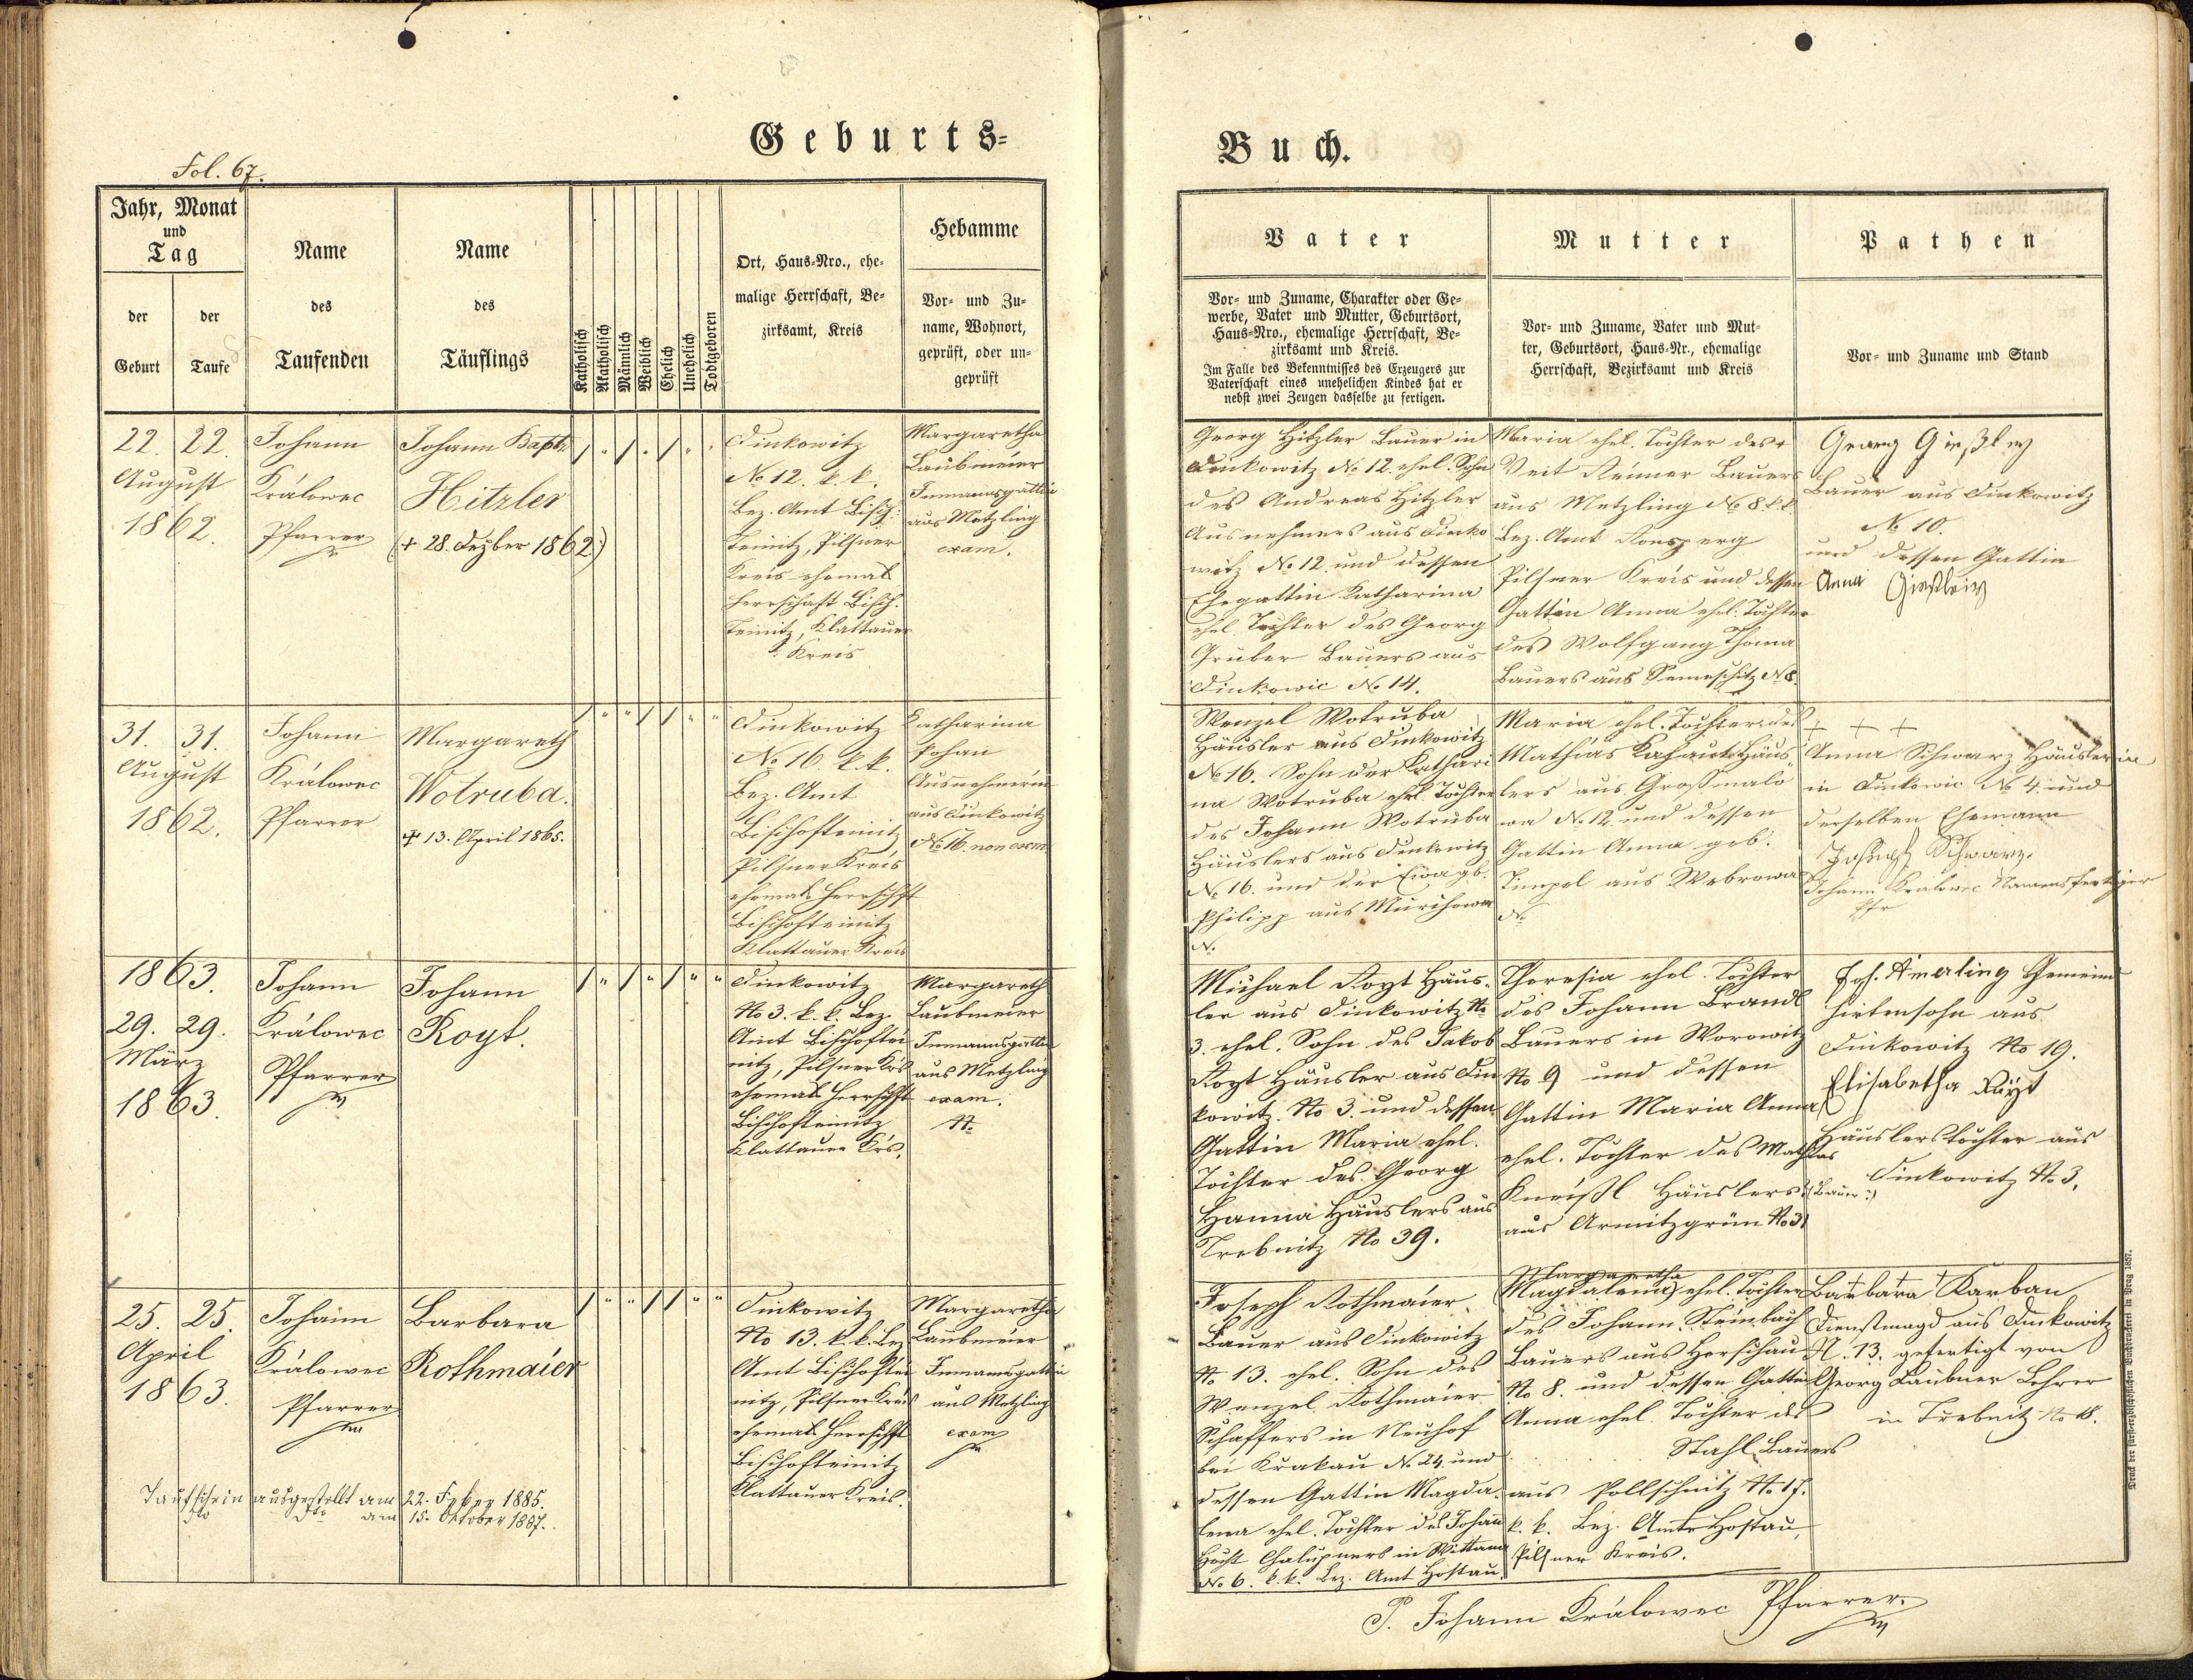 Geburts-
Buch.
Fol. 67.
Jahr, Monat
und
Tag
der
Geburt
der
Taufe
Name
des
Taufenden
Name
des
Täuflings
Katholisch
Akatholisch
Männlich
Weiblich
Ehelich
Unehelich
Todtgeboren
Ort, Haus-Nro., ehe-
malige Herrschaft, Be-
zirksamt, Kreis
Hebamme
Vor- und Zu-
name, Wohnort,
geprüft, oder un-
geprüft
Vater
Vor- und Zuname, Charakter oder Ge-
werbe, Vater und Mutter, Geburtsort,
Haus-Nro., ehemalige Herrschaft, Be-
zirksamt und Kreis.
Im Falle des Bekenntnisses des Erzeugers zur
Vaterschaft eines unehelichen Kindes hat er
nebst zwei Zeugen dasselbe zu fertigen.
Mutter
Vor- und Zuname, Vater und Mut-
ter, Geburtsort, Haus-Nr., ehemalige
Herrschaft, Bezirksamt und Kreis
Pathen
Vor- und Zuname und Stand
22. 22.
August
1862.
Johann
Králowec
Pfarrer
Johann Bapt.
Hitzler
(+ 28. Dezber 1862:)
Dinkowitz
No 12. k. k.
Bez. Amt Bisch:
Teinitz, Pilsner
Kreis ehemals
Herrschaft Bisch.
Teinitz, Klattauer
Kreis
Margaretha
Laubmeier
Inmannsgattin
aus Metzling
exam.
Georg Hitzler Bauer in
Dinkowitz No 12. ehel. Sohn
des Andreas Hitzler
Ausnehmers aus Dinko
witz No 12. und dessen
Ehegattin Katharina
ehel. Tochter des Georg
Gruber Bauers aus
Dinkowic No 14.
Maria ehel. Tochter des +
Veit Reimer Bauers
aus Metzling No 8. k. k.
Bez. Amt Ronsperg
Pilsner Kreis und dessen
Gattin Anna ehel. Tochter
des Wolfgang Thoma
Bauers aus Semeschitz N 8.
Georg
Bauer aus Dinkowitz
No 10.
und dessen Gattin
Anna
31. 31.
August
1862.
Johann
Králowec
Pfarrer
Margareth
Wotruba.
+ 13. April 1865.
Dinkowitz
No 16. k. k.
Bez. Amt
Bischofteinitz
Pilsner Kreis
ehemals Herrschft
Bischofteinitz
Klattauer Kreis
Katharina
Pohan
Ausnehmerin
aus Dinkowitz
No 16. non exam.
Wenzel Wotruba
Häusler aus Dinkowitz
No 16. Sohn der Kathari
na Wotruba ehel. Tochter
des Johann Wotruba
Häuslers aus Dinkowitz
No 16. und der Eva gb.
Philipp aus
N.
Maria ehel. Tochter des
Mathias Häus-
lers aus Großmalo
wa No 12. und dessen
Gattin Anna geb.
aus Webrowa
No
+ + +
Anna Schwarz Häuslerin
in Dinkowic No 4. und
derselben Ehemann
Joseph Schwarz.
Johann Králowec Namensfertiger
Pfr
1863.
29. 29.
März
1863.
Johann
Králowec
Pfarrer
Johann
Royt.
Dinkowitz
No 3. k. k. Bez.
Amt Bischoftei
nitz, Pilsner Krs
ehemals Herrschft
Bischofteinitz
Klattauer Krs.
Margareth
Laubmeier
Inmannsgattin
aus Metzling
exam.
Michael Royt Häus-
ler aus Dinkowitz No
3. ehel. Sohn des Jakob
Royt Häusler aus Din
kowitz No 3. und dessen
Gattin Maria ehel.
Tochter des Georg
Hanna Häuslers aus
Trebnitz No 39.
Theresia ehel. Tochter
des Johann Brandl
Bauers in Worowitz
No 9 und dessen
Gattin Maria Anna
ehel. Tochter des Mathias
Kneißl Häuslers (:Bauer:)
aus Armitzgrün No 31
Joh. Amerling Gemeind
hirtensohn aus
Dinkowitz No 19.
Elisabetha Röyt
Häuslerstochter aus
Dinkowitz No 3.
25. 25.
April
1863.
Johann
Králowec
Pfarrer
Barbara
Rothmaier
Dinkowitz
No 13. k. k. Bez
Amt Bischoftei
nitz, Pilsner Kreis
ehemals Herrschft
Bischofteinitz
Klattauer Kreis.
Margaretha
Laubmeier
Inmannsgattin
aus Metzling
exam
Joseph Rothmaier
Bauer aus Dinkowitz
No 13. ehel. Sohn des
Wenzel Rothmaier
Schaffers in Neuhof
bei Krakau No 24. und
dessen Gattin Magda-
lena ehel. Tochter des Johann
Chalupners in Wittana
No 6. k. k. Bez. Amt Hostau.
Margaretha
Magdalena ehel. Tochter
des Johann Steinbach
Bauers aus Horschau
No 8. und dessen Gattin
Anna ehel. Tochter des
Stahl Bauers
aus Pollschitz No 17.
k. k. Bez. Amts Hostau,
Pilsner Kreis.
+ + +
Barbara Karban
Dienstmagd aus Dinkowitz
N. 13. gefertigt von
Georg Läubner Lehrer
in Trebnitz No 18.
Taufschein ausgestellt am 22. 1885.
dto dto am 15. Oktober 1887.
P. Johann Králowec Pfarrer.
Druck der fürsterzbischöflichen Buchdruckerei in Prag 1857.